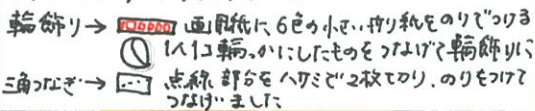 輪飾り→ 画用紙に6色の小さい折り紙をのりでつける
1人1コ輪っかにしたものをつなげて輪飾りに
三角つなぎ→ 点線部分をハサミで2枚で切り、のりをつけて
つなげました